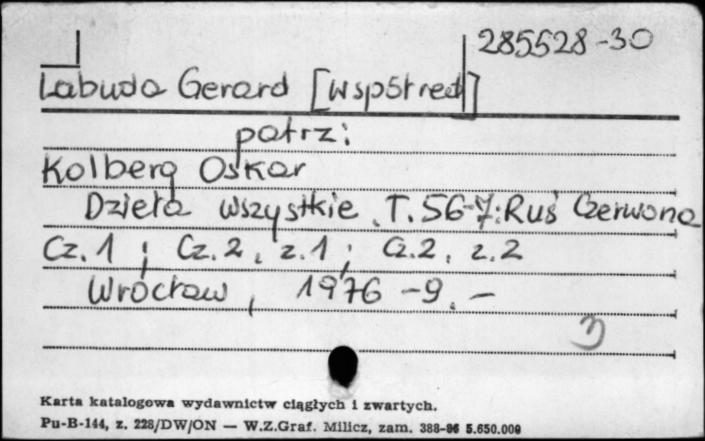 285528-30
Labuda Gerard [współred]
patrz:
Kolberg Oskar
Dzieła wszystkie. T. 56-7: Ruś Czerwona
Cz. 1 ; Cz. 2, z. 1 ; Cz. 2, z. 2
Wrocław, 1976-9. -
Karta katalogowa wydawnictw ciągłych i zwartych.
Pu-B-144, z. 228/DW/ON — W.Z.Graf. Milicz, zam. 388-86 5.650.000